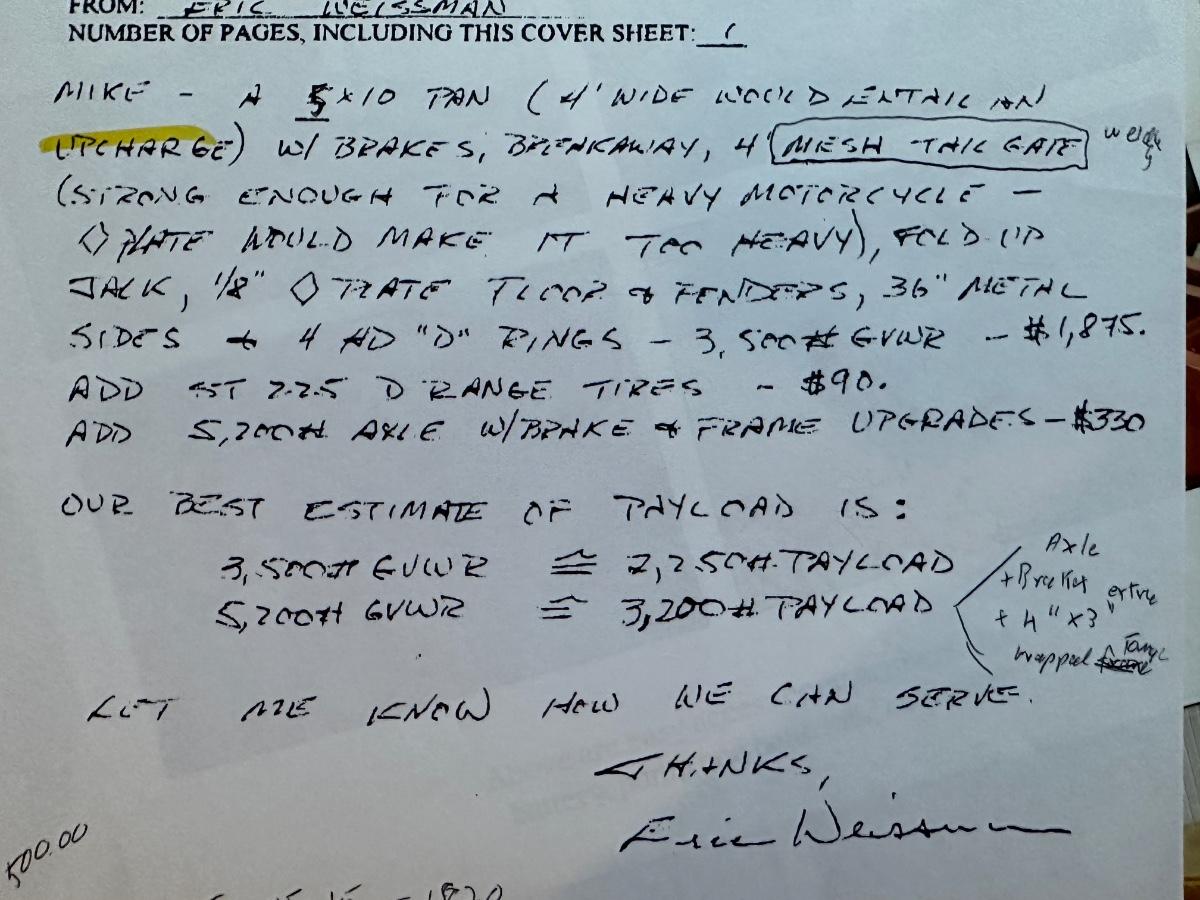 FROM: ERIC WEISSMAN
NUMBER OF PAGES, INCLUDING THIS COVER SHEET: 1
MIKE - A 5x10 PAN (4' WIDE WOULD ENTAIL AN
UPCHARGE) W/ BRAKES, BREAKAWAY, 4' MESH TAIL GATE
(STRONG ENOUGH FOR A HEAVY MOTORCYCLE -
◇ PLATE WOULD MAKE IT TOO HEAVY), FOLD UP
JACK, 1/8" ◇ PLATE FLOOR & FENDERS, 36" METAL
SIDES & 4 HD "D" RINGS - 3,500# GVWR - $1,875.
ADD ST 225 D RANGE TIRES - $90.
ADD 5,200# AXLE W/BRAKE & FRAME UPGRADES - $330
OUR BEST ESTIMATE OF PAYLOAD IS:
3,500# GVWR ≅ 2,250# PAYLOAD
5,200# GVWR ≅ 3,200# PAYLOAD
Axle
+ Bracket
extra
+ 4" x 3"
wrapped
LET ME KNOW HOW WE CAN SERVE.
THANKS,
Eric Weissman
500.00